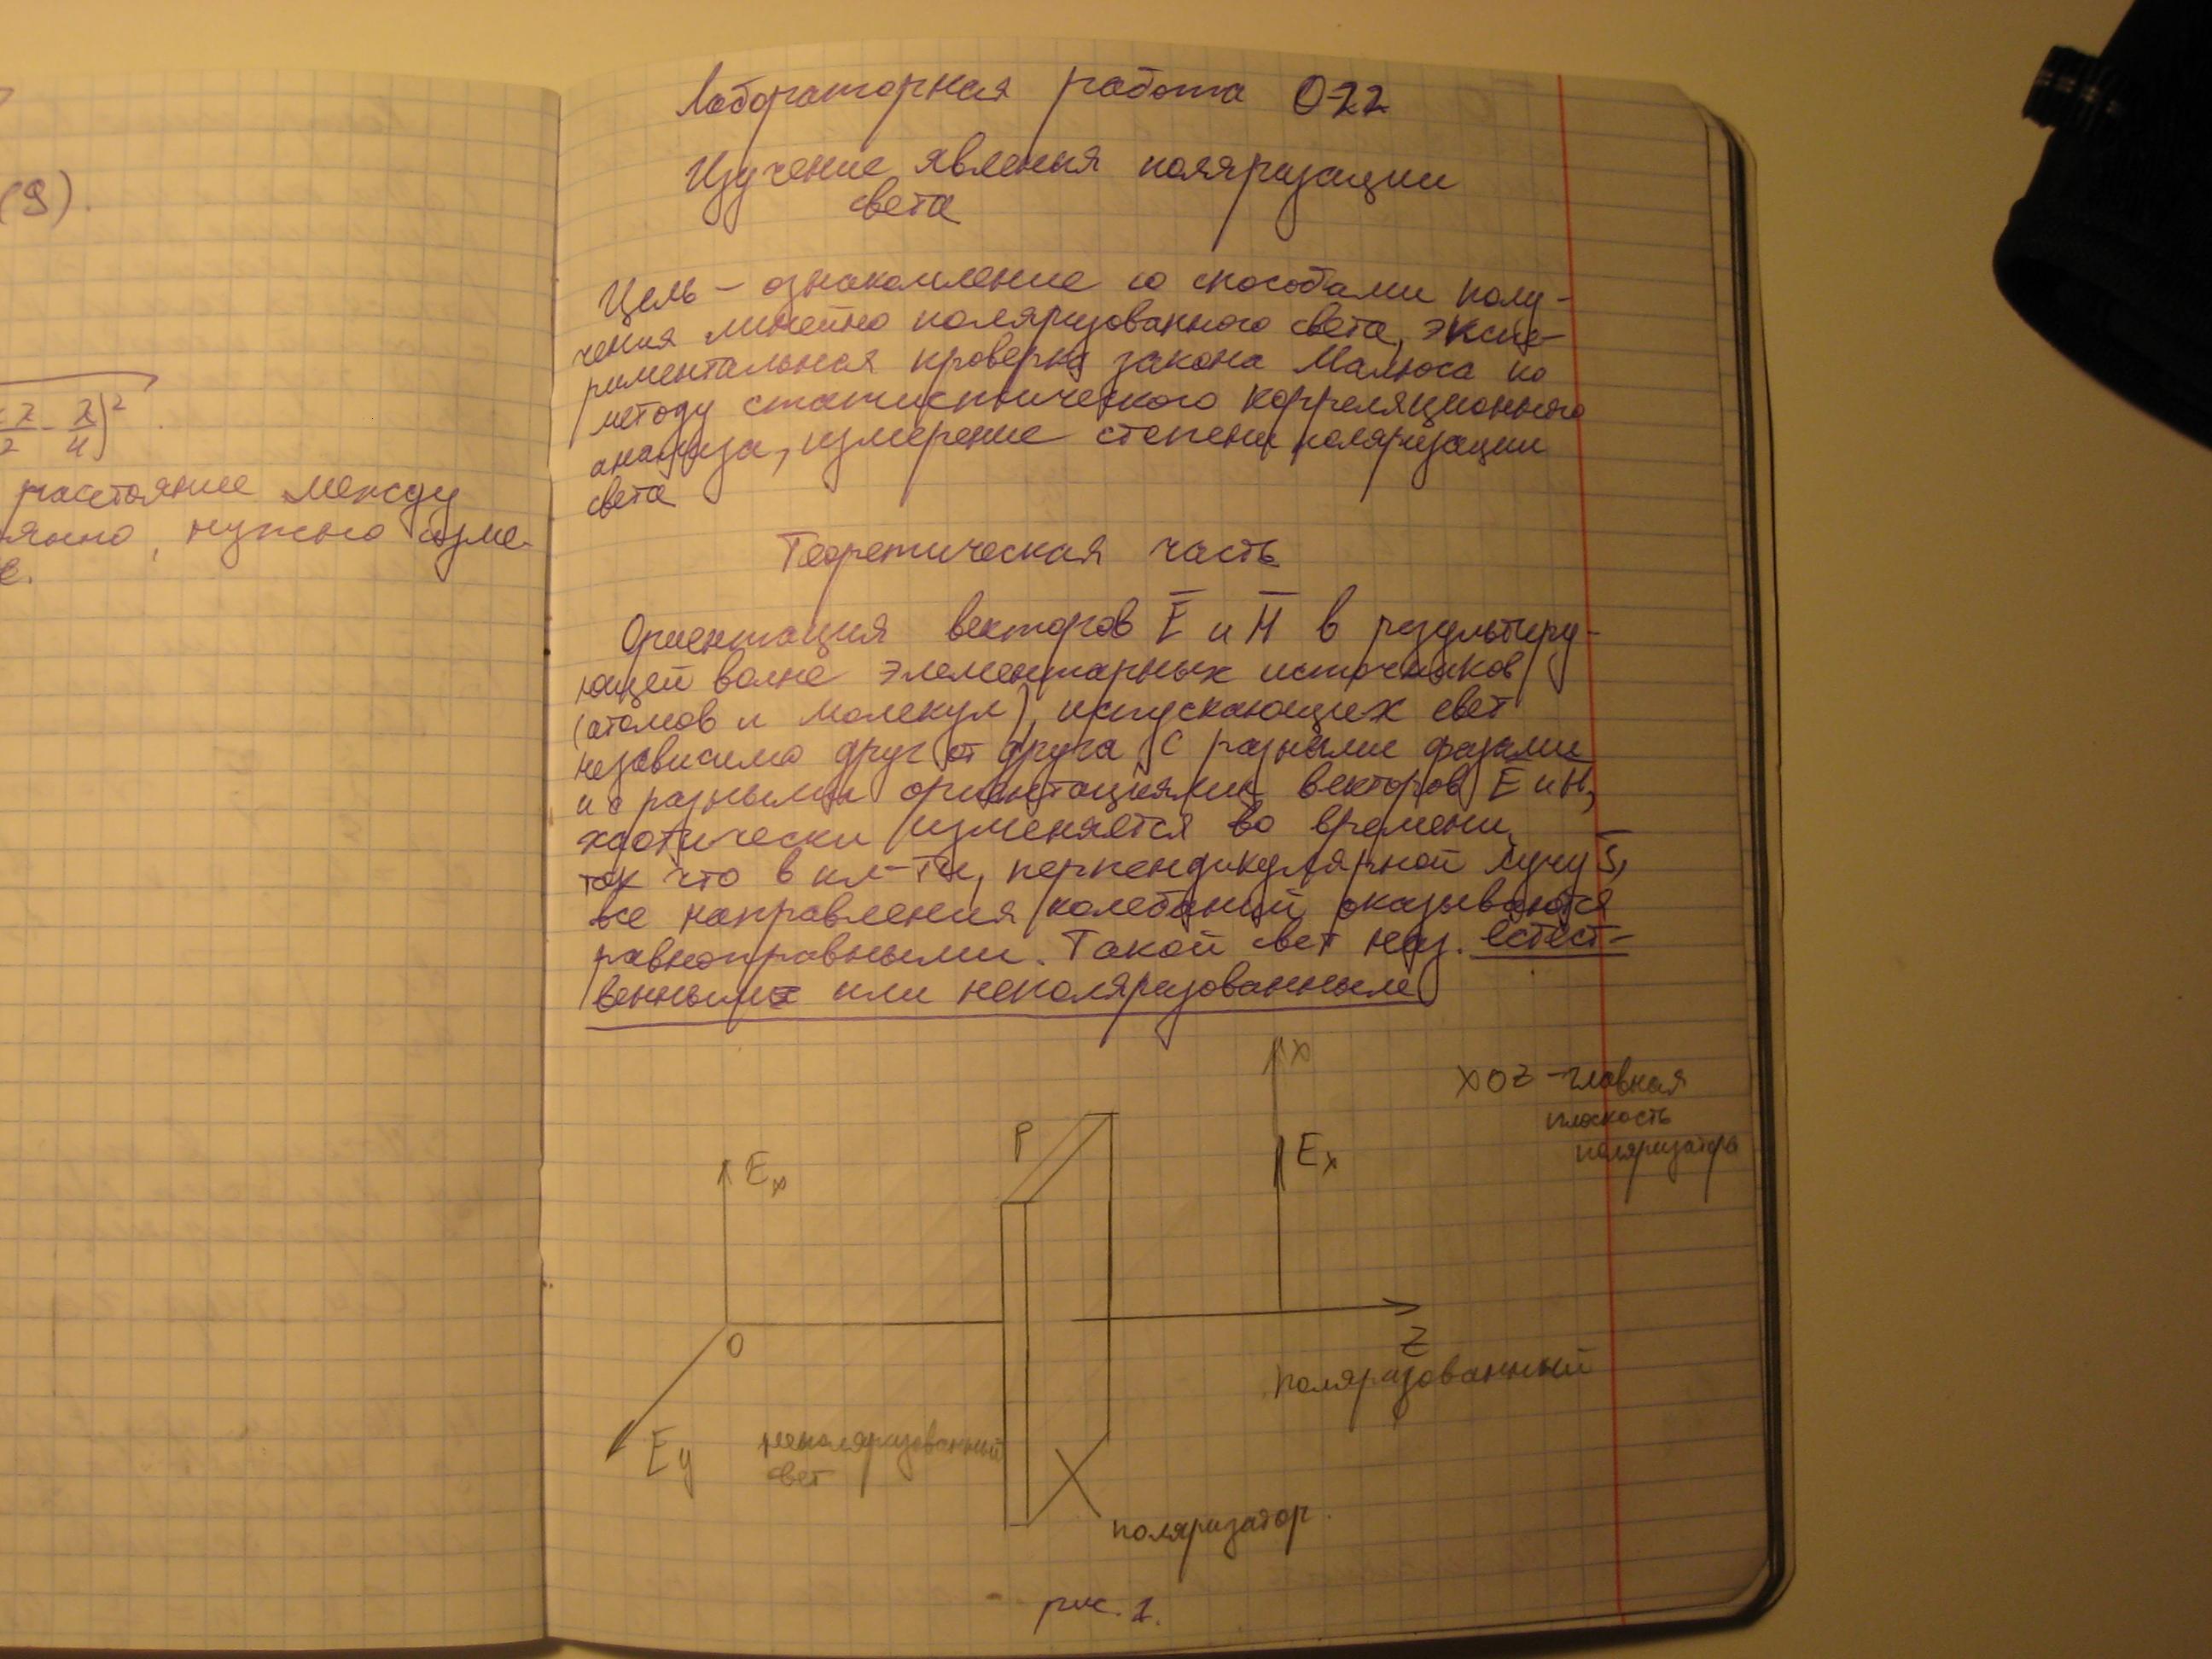 (9).
расстояние между
янно, нужно изме-
е.
Лабораторная работа О-22
Изучение явления поляризации
света
Цель – ознакомление со способами полу-
чения линейно поляризованного света, экспе-
риментальная проверка закона Малюса по
методу статистического корреляционного
анализа, измерение степени поляризации
света
Теоретическая часть
Ориентация векторов Ē и H̄ в результиру-
ющей волне элементарных источников
(атомов и молекул), испускающих свет
независимо друг от друга, с разными фазами
и с разными ориентациями векторов Ē и H̄,
хаотически изменяется во времени,
так что в пл-ти, перпендикулярной лучу S̄,
все направления колебаний оказываются
равноправными. Такой свет наз. естест-
венным или неполяризованным
x
XOZ – главная
плоскость
поляризатора
P
Ex
Ex
O
Z
поляризованный
Ey
неполяризованный
свет
поляризатор.
рис. 1.